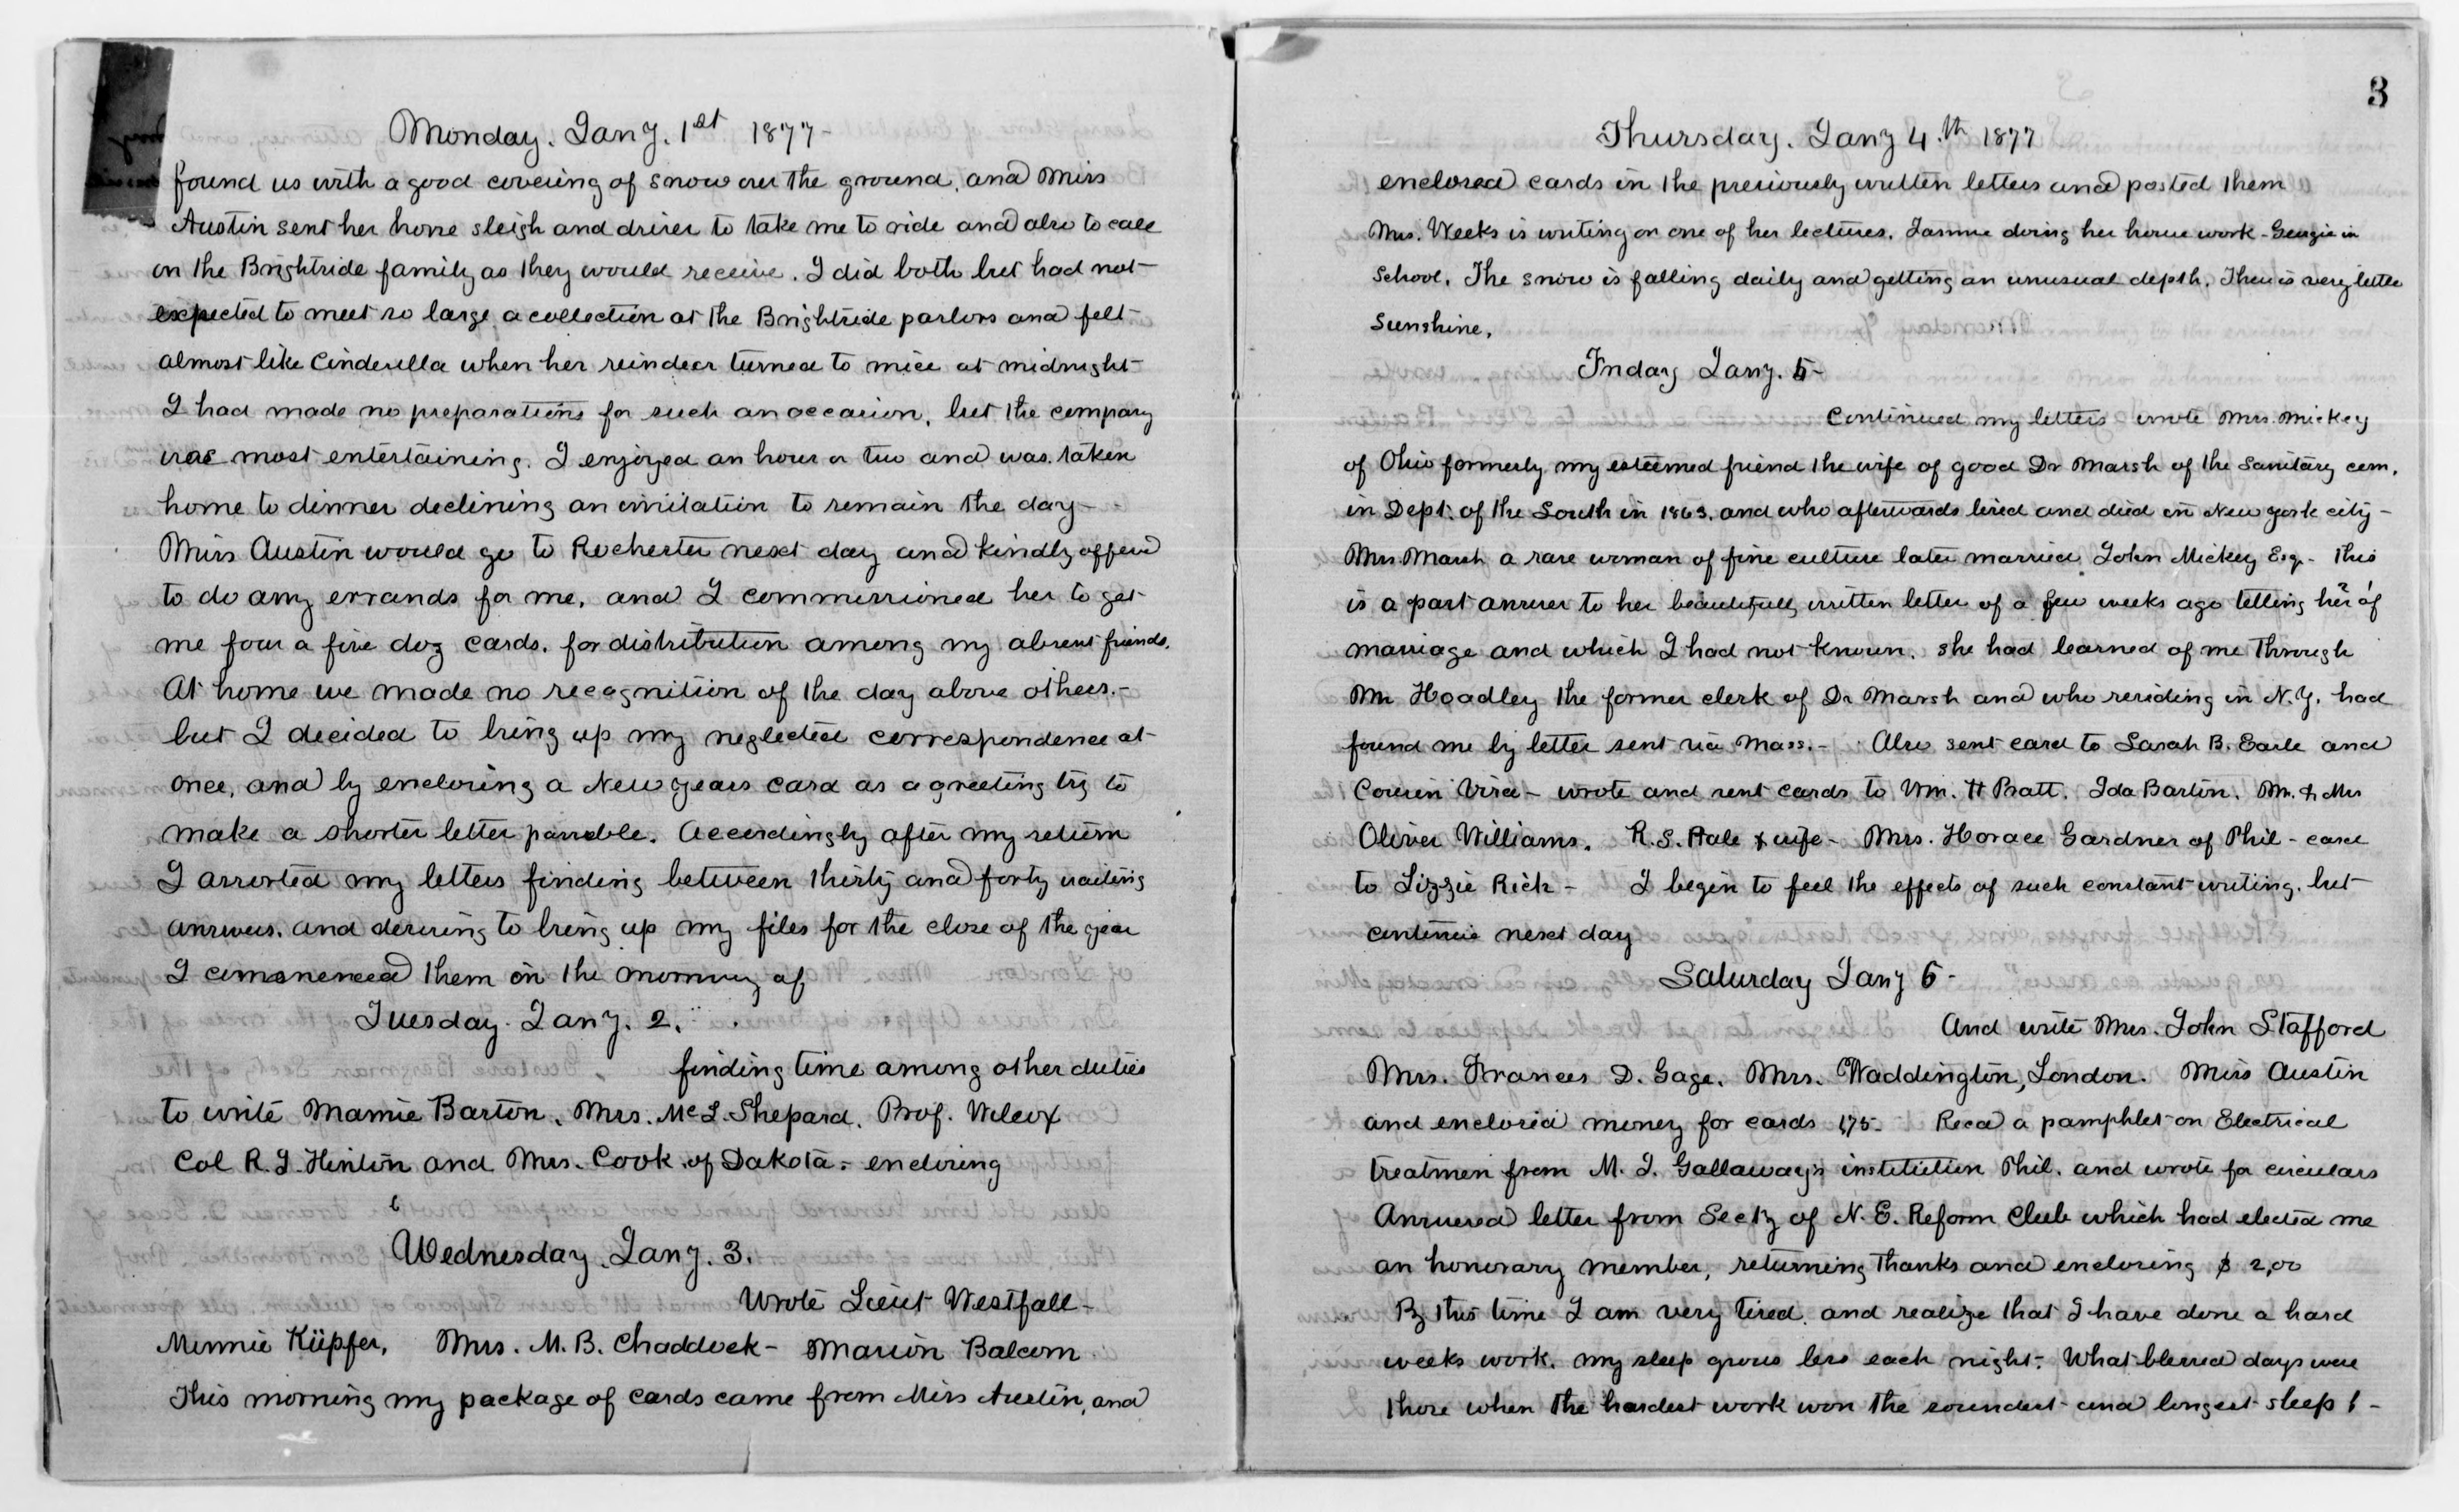 Monday. Jany. 1st 1877-
found us with a good covering of snow over the ground, and Miss
Austin sent her horse sleigh and driver to take me to ride and also to call
on the Brightside family as they would receive. I did both but had not
expected to meet so large a collection at the Brightside parlors and felt
almost like Cinderella when her reindeer turned to mice at midnight-
I had made no preparations for such an occasion, but the company
was most entertaining. I enjoyed an hour or two and was taken
home to dinner declining an invitation to remain the day-
Miss Austin would go to Rochester next day and kindly offered
to do any errands for me, and I commissioned her to get
me four a five doz cards. for distribution among my absent friends.
At home we made no recognition of the day above others.-
but I decided to bring up my neglected correspondence at
once, and by enclosing a New years card as a greeting try to
make a shorter letter passable. Accordingly after my return
I assorted my letters finding between thirty and forty waiting
answers. and desiring to bring up my files for the close of the year
I commenced them on the morning of
Tuesday. Jany. 2.
finding time among other duties
to write Mamie Barton, Mrs. McL. Shepard. Prof. Wilcox
Col R. J. Hinton and Mrs. Cook of Dakota - enclosing
Wednesday. Jany. 3.
Wrote Lieut Westfall-
Minnie Küpfer, Mrs. M. B. Chaddock - Marion Balcom
This morning my package of cards came from Miss Austin, and
3
Thursday. Jany 4.th 1877
enclosed cards in the previously written letters and posted them
Mrs. Weeks is writing on one of her lectures. Fannie doing her house work - Georgie in
School. The snow is falling daily and getting an unusual depth. There is very little
Sunshine.
Friday Jany. 5-
Continued my letters wrote Mrs. Mickey
of Ohio formerly my esteemed friend the wife of good Dr Marsh of the Sanitary com.
in Dept. of the South in 1863. and who afterwards lived and died in New York city-
Mrs. Marsh a rare woman of fine culture later married John Mickey Esq. - This
is a part answer to her beautifully written letter of a few weeks ago telling her of
marriage and which I had not known. she had learned of me through
Mr Hoadley the former clerk of Dr Marsh and who residing in N.Y. had
found me by letter sent via Mass. - Also sent card to Sarah B. Earle and
Cousin Vira - wrote and sent cards to Wm. H Pratt. Ida Barton. Mr. & Mrs
Oliver Williams. R.S. Hale & wife - Mrs. Horace Gardner of Phil - card
to Lizzie Rich - I begin to feel the effects of such constant writing. but
continue next day
Saturday Jany 6-
And write Mrs. John Stafford
Mrs. Frances D. Gage. Mrs. Waddington, London. Miss Austin
and enclosed money for cards 1,75. Recd a pamphlet on Electrical
treatmen from M. J. Gallaway's institution Phil. and wrote for circulars
Answered letter from Secty of N. E. Reform Club which had elected me
an honorary member, returning thanks and enclosing $ 2,00
By this time I am very tired. and realize that I have done a hard
weeks work. my sleep grows less each night. What blessed days were
those when the hardest work won the soundest and longest sleep! -